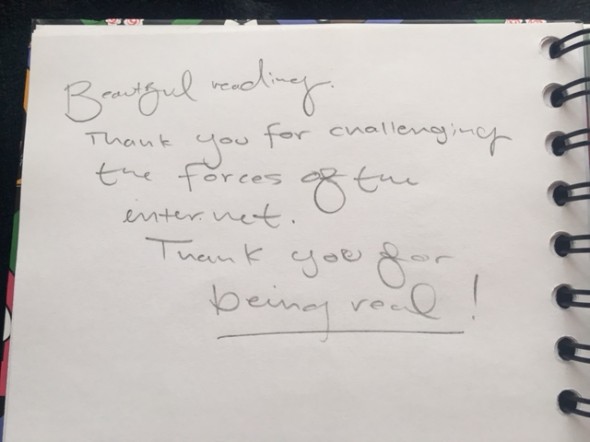 Beautiful reading.
Thank you for challenging
the forces of the
internet.
Thank you for
being real!